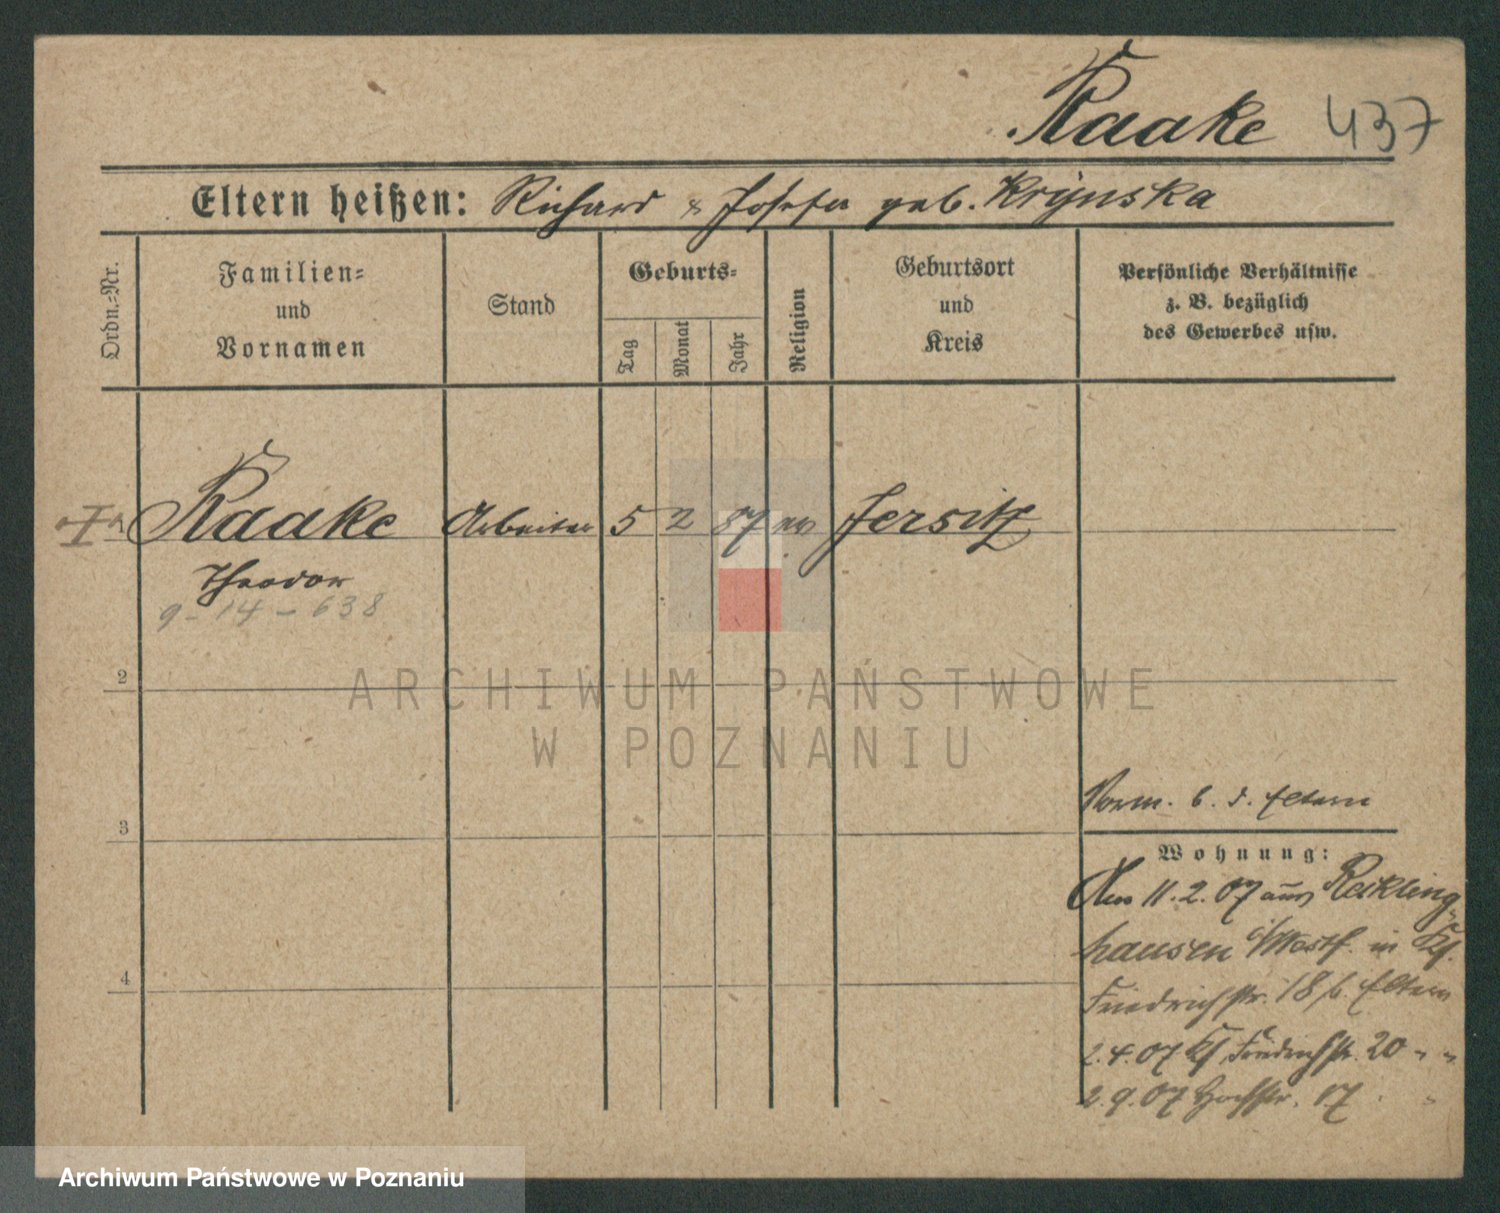 Raake 437
Eltern heißen: Richard & Josefa geb. Krÿnska
Ordn.=Nr.
Familien=
und
Vornamen
Stand
Geburts=
Tag
Monat
Jahr
Religion
Geburtsort
und
Kreis
Persönliche Verhältnisse
z. B. bezüglich
des Gewerbes usw.
Raake Arbeiter 5 2 87 ev Jersitz
Theodor
9-14-638
2
ARCHIWUM PAŃSTWOWE
W POZNANIU
3
Vorm. b. d. Eltern
Wohnung:
11.2.07 aus Reckling
hausen i/Westf. in
Friedrichstr. 18 b. Eltern
2.4.07 Friedrichstr. 20 " "
2.9.07 Hochstr. 17 "
4
Archiwum Państwowe w Poznaniu